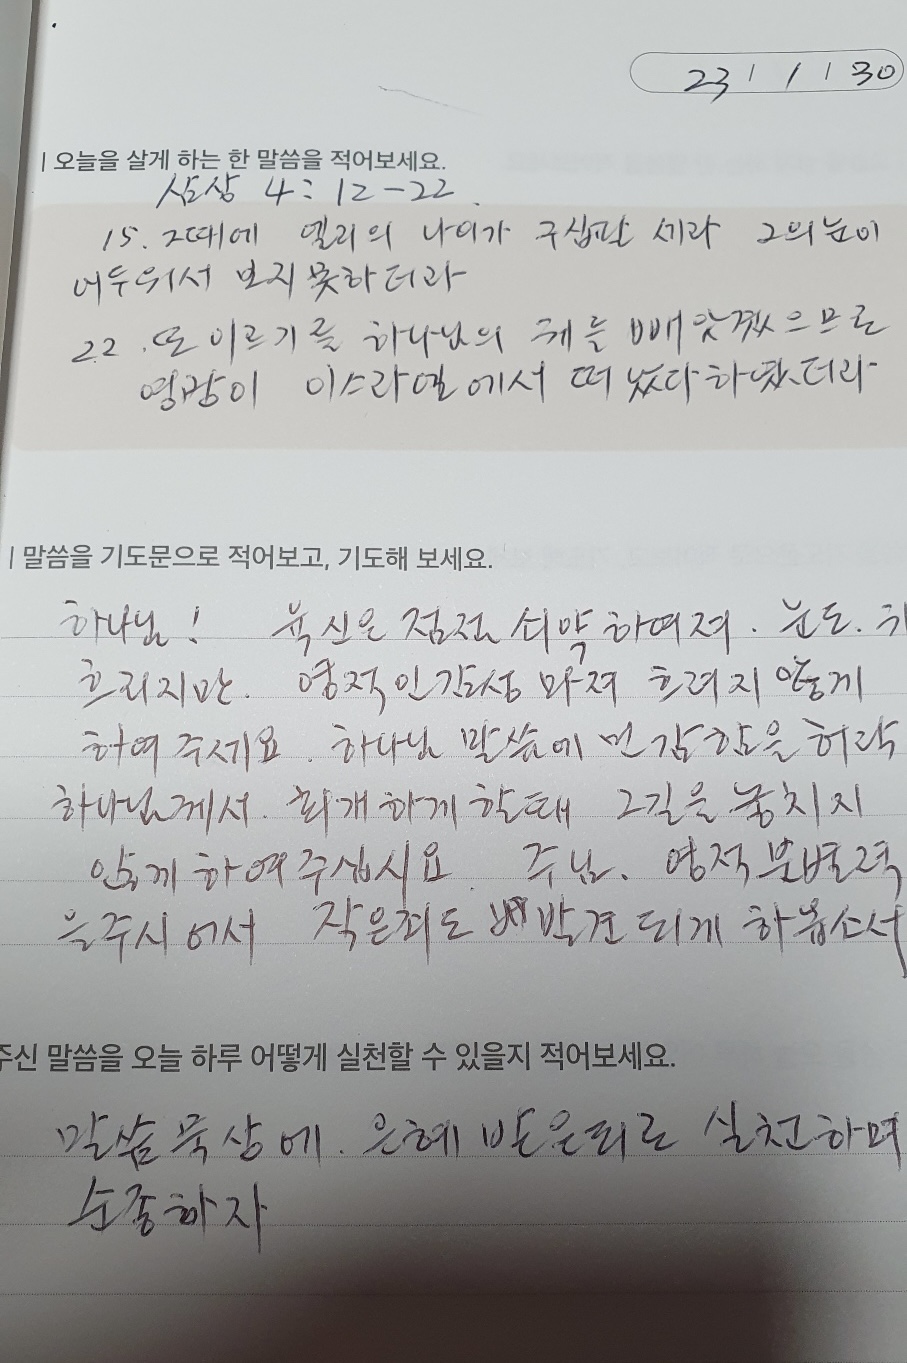 23 | 1 | 30
| 오늘을 살게 하는 한 말씀을 적어보세요.
삼상 4:12-22.
15. 그때에 엘리의 나이가 구십팔 세라 그의 눈이
어두워서 보지 못하더라
22. 또 이르기를 하나님의 궤를 빼앗겼으므로
영광이 이스라엘에서 떠났다 하였더라
| 말씀을 기도문으로 적어보고, 기도해 보세요.
하나님! 육신은 점점 쇠약하여져. 눈도.
흐리지만. 영적인감성 마져 흐려지 않게
하여주세요. 하나님 말씀에 민감함을 허락
하나님께서. 회개하게 할때 그길을 놓치지
않게 하여주십시요. 주님. 영적분별력
을주시어서 작은죄도 발견되게 하옵소서
주신 말씀을 오늘 하루 어떻게 실천할 수 있을지 적어보세요.
말씀묵상에. 은혜 받은되로 실천하며
순종하자